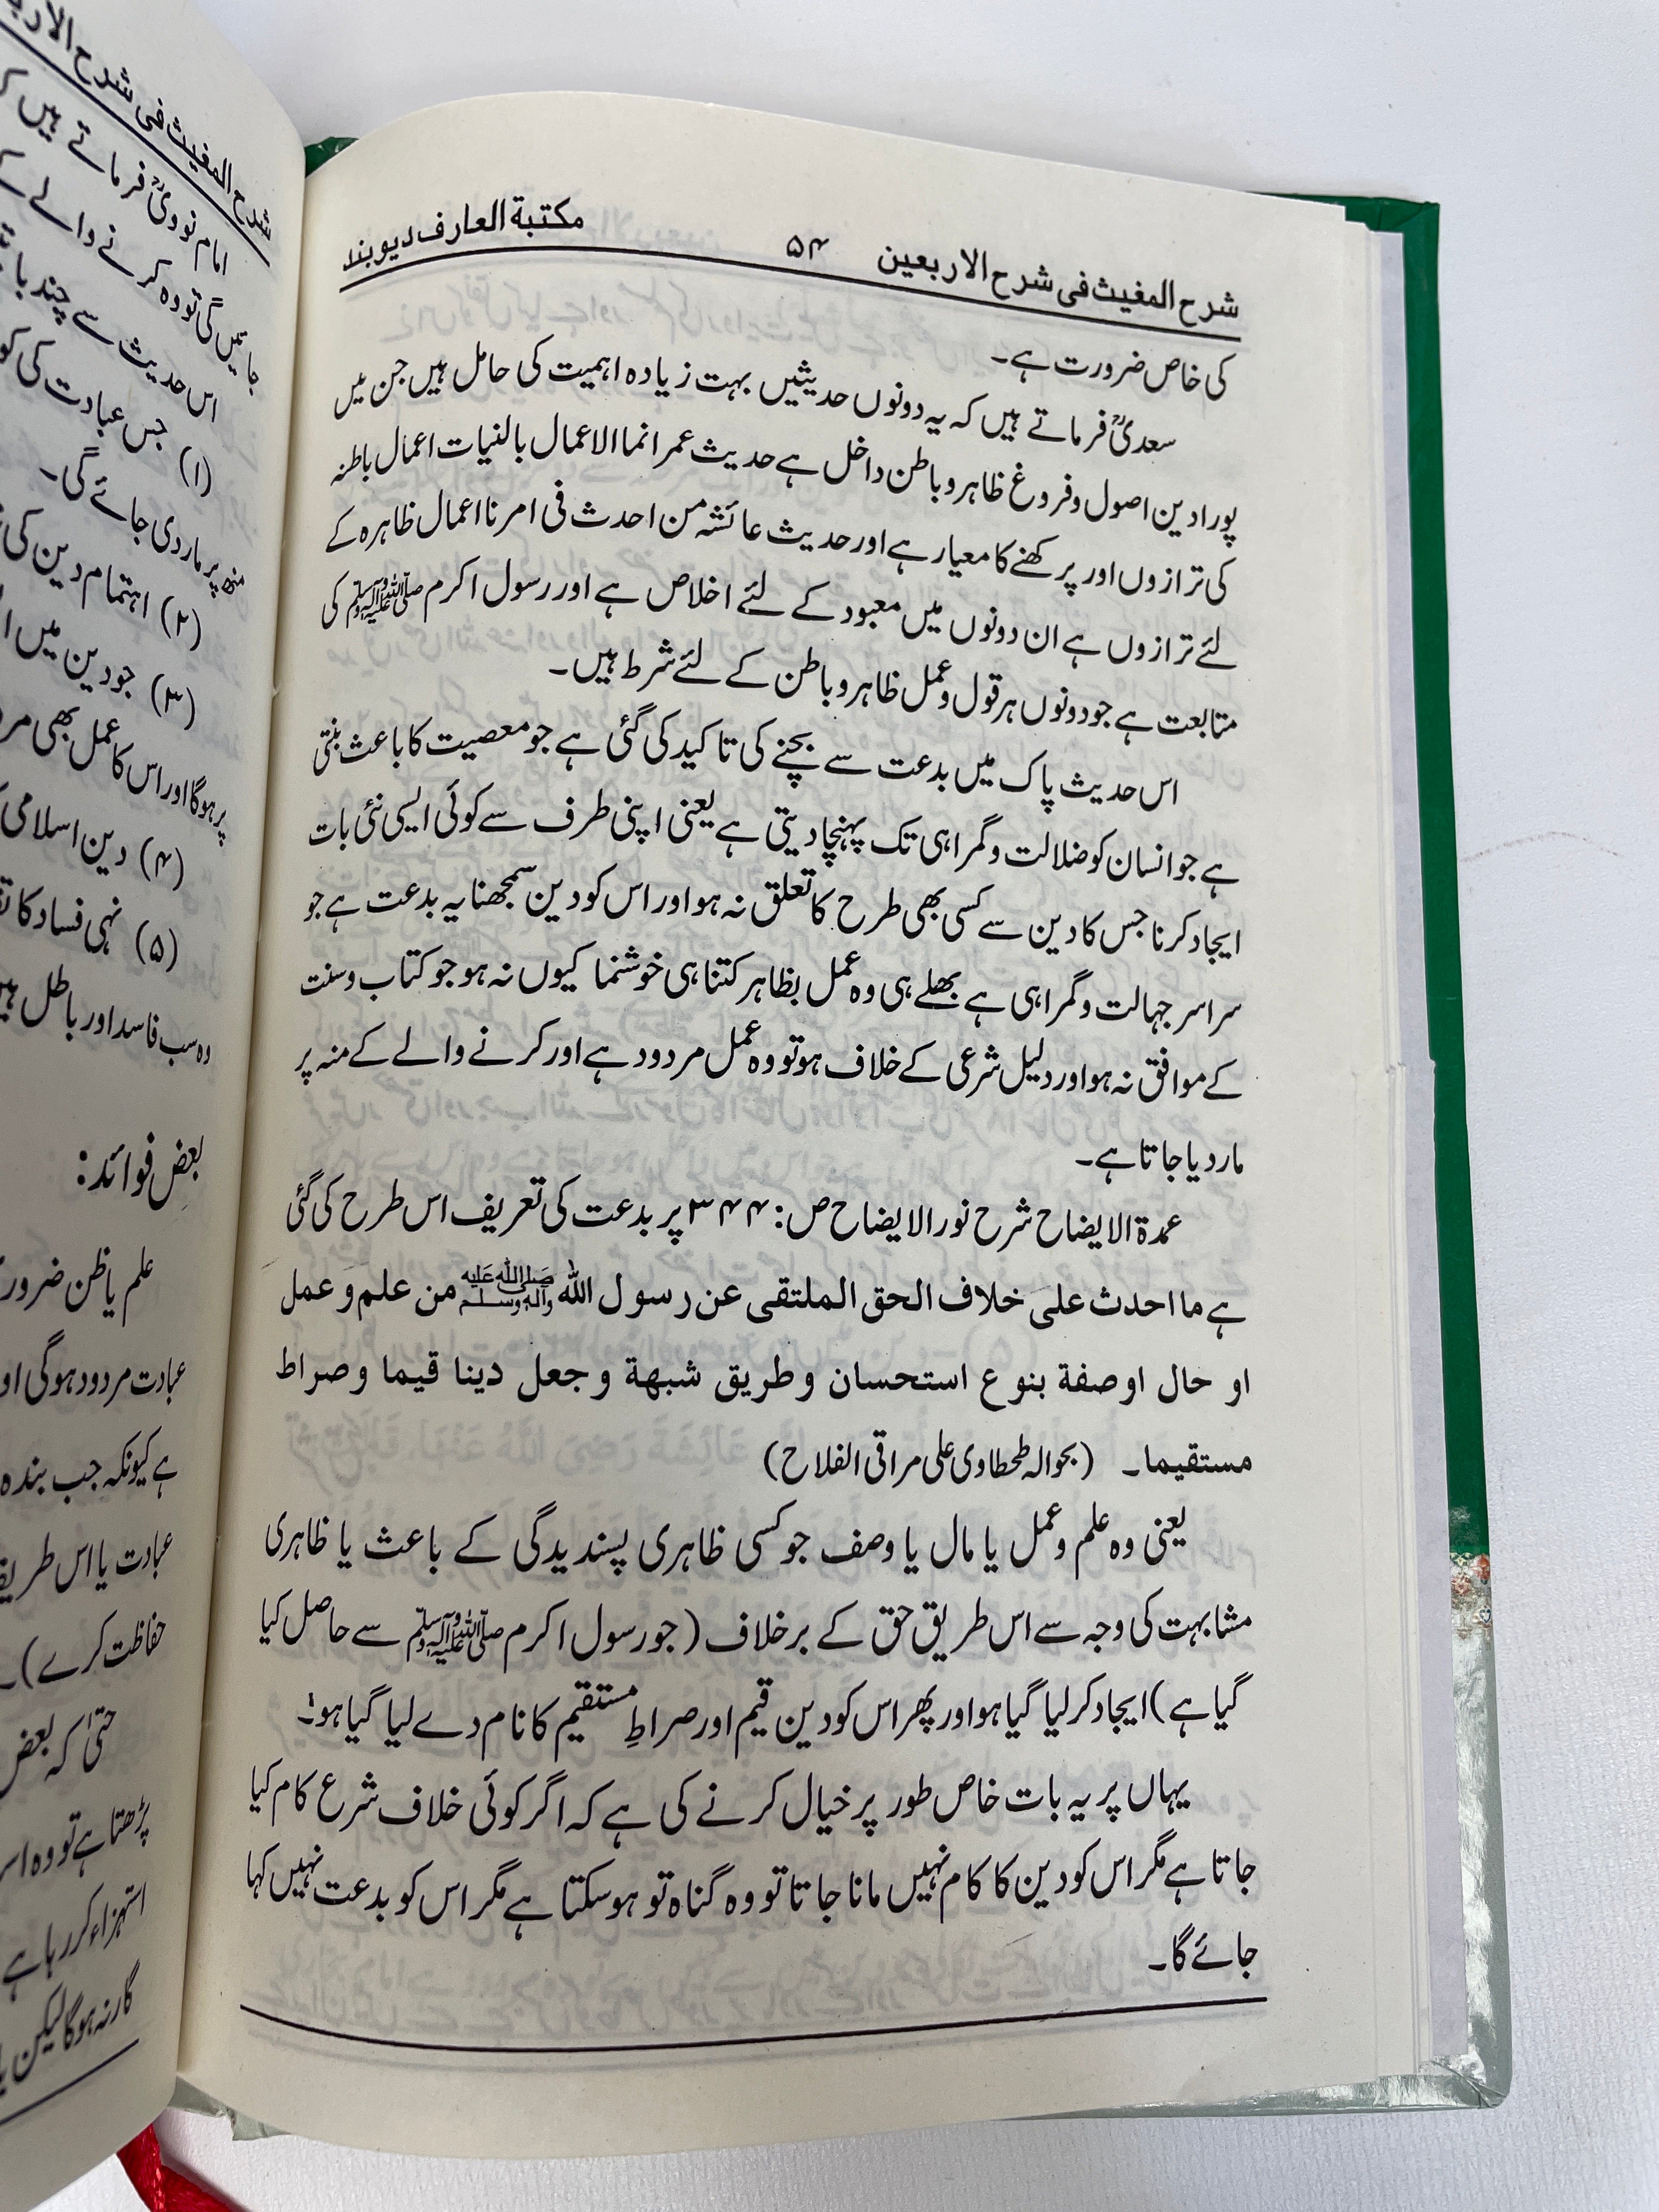 شرح المغیث فی شرح الاربعین ۵۴ مکتبة العارف دیوبند
کی خاص ضرورت ہے۔
سعدیؒ فرماتے ہیں کہ یہ دونوں حدیثیں بہت زیادہ اہمیت کی حامل ہیں جن میں
پورا دین اصول و فروغ ظاہر و باطن داخل ہے حدیث عمر انما الاعمال بالنیات اعمال باطنہ
کی ترازوں اور پرکھنے کا معیار ہے اور حدیث عائشہ من احدث فی امرنا اعمال ظاہرہ کے
لئے ترازوں ہے ان دونوں میں معبود کے لئے اخلاص ہے اور رسول اکرم ﷺ کی
متابعت ہے جو دونوں ہر قول و عمل ظاہر و باطن کے لئے شرط ہیں۔
اس حدیث پاک میں بدعت سے بچنے کی تاکید کی گئی ہے جو معصیت کا باعث بنتی
ہے جو انسان کو ضلالت و گمراہی تک پہنچا دیتی ہے یعنی اپنی طرف سے کوئی ایسی نئی بات
ایجاد کرنا جس کا دین سے کسی بھی طرح کا تعلق نہ ہو اور اس کو دین سمجھنا یہ بدعت ہے جو
سراسر جہالت و گمراہی ہے بھلے ہی وہ عمل بظاہر کتنا ہی خوشنما کیوں نہ ہو جو کتاب و سنت
کے موافق نہ ہو اور دلیل شرعی کے خلاف ہو تو وہ عمل مردود ہے اور کرنے والے کے منہ پر
مار دیا جاتا ہے۔
عمدۃ الایضاح شرح نور الایضاح ص: ۳۴۴ پر بدعت کی تعریف اس طرح کی گئی
ہے ما احدث علی خلاف الحق الملتقی عن رسول اللہ ﷺ من علم و عمل
او حال او صفة بنوع استحسان و طریق شبهة و جعل دینا قیما و صراط
مستقیما۔ (بحوالہ طحطاوی علی مراقی الفلاح)
یعنی وہ علم و عمل یا مال یا وصف جو کسی ظاہری پسندیدگی کے باعث یا ظاہری
مشابہت کی وجہ سے اس طریق حق کے برخلاف (جو رسول اکرم ﷺ سے حاصل کیا
گیا ہے) ایجاد کر لیا گیا ہو اور پھر اس کو دین قیم اور صراطِ مستقیم کا نام دے لیا گیا ہو۔
یہاں پر یہ بات خاص طور پر خیال کرنے کی ہے کہ اگر کوئی خلاف شرع کام کیا
جاتا ہے مگر اس کو دین کا کام نہیں مانا جاتا تو وہ گناہ تو ہو سکتا ہے مگر اس کو بدعت نہیں کہا
جائے گا۔
شرح المغیث فی شرح
امام نوویؒ فرماتے ہیں
جائیں گی تو وہ کرنے والے
اس حدیث سے چند
(۱) جس عبادت کی
منھ پر مار دی جائے گی۔
(۲) اہتمام دین کی
(۳) جو دین میں
پر ہوگا اور اس کا عمل بھی
(۴) دین اسلامی
(۵) نہی فساد کا
وہ سب فاسد اور باطل
بعض فوائد:
علم یا ظن
عبادت مردود ہوگی
ہے کیونکہ جب بندہ
عبادت یا اس
حفاظت کرے)۔
حتیٰ کہ بعض
پڑھتا ہے تو وہ
استہزاء کر رہا ہے
گار نہ ہوگا لیکن